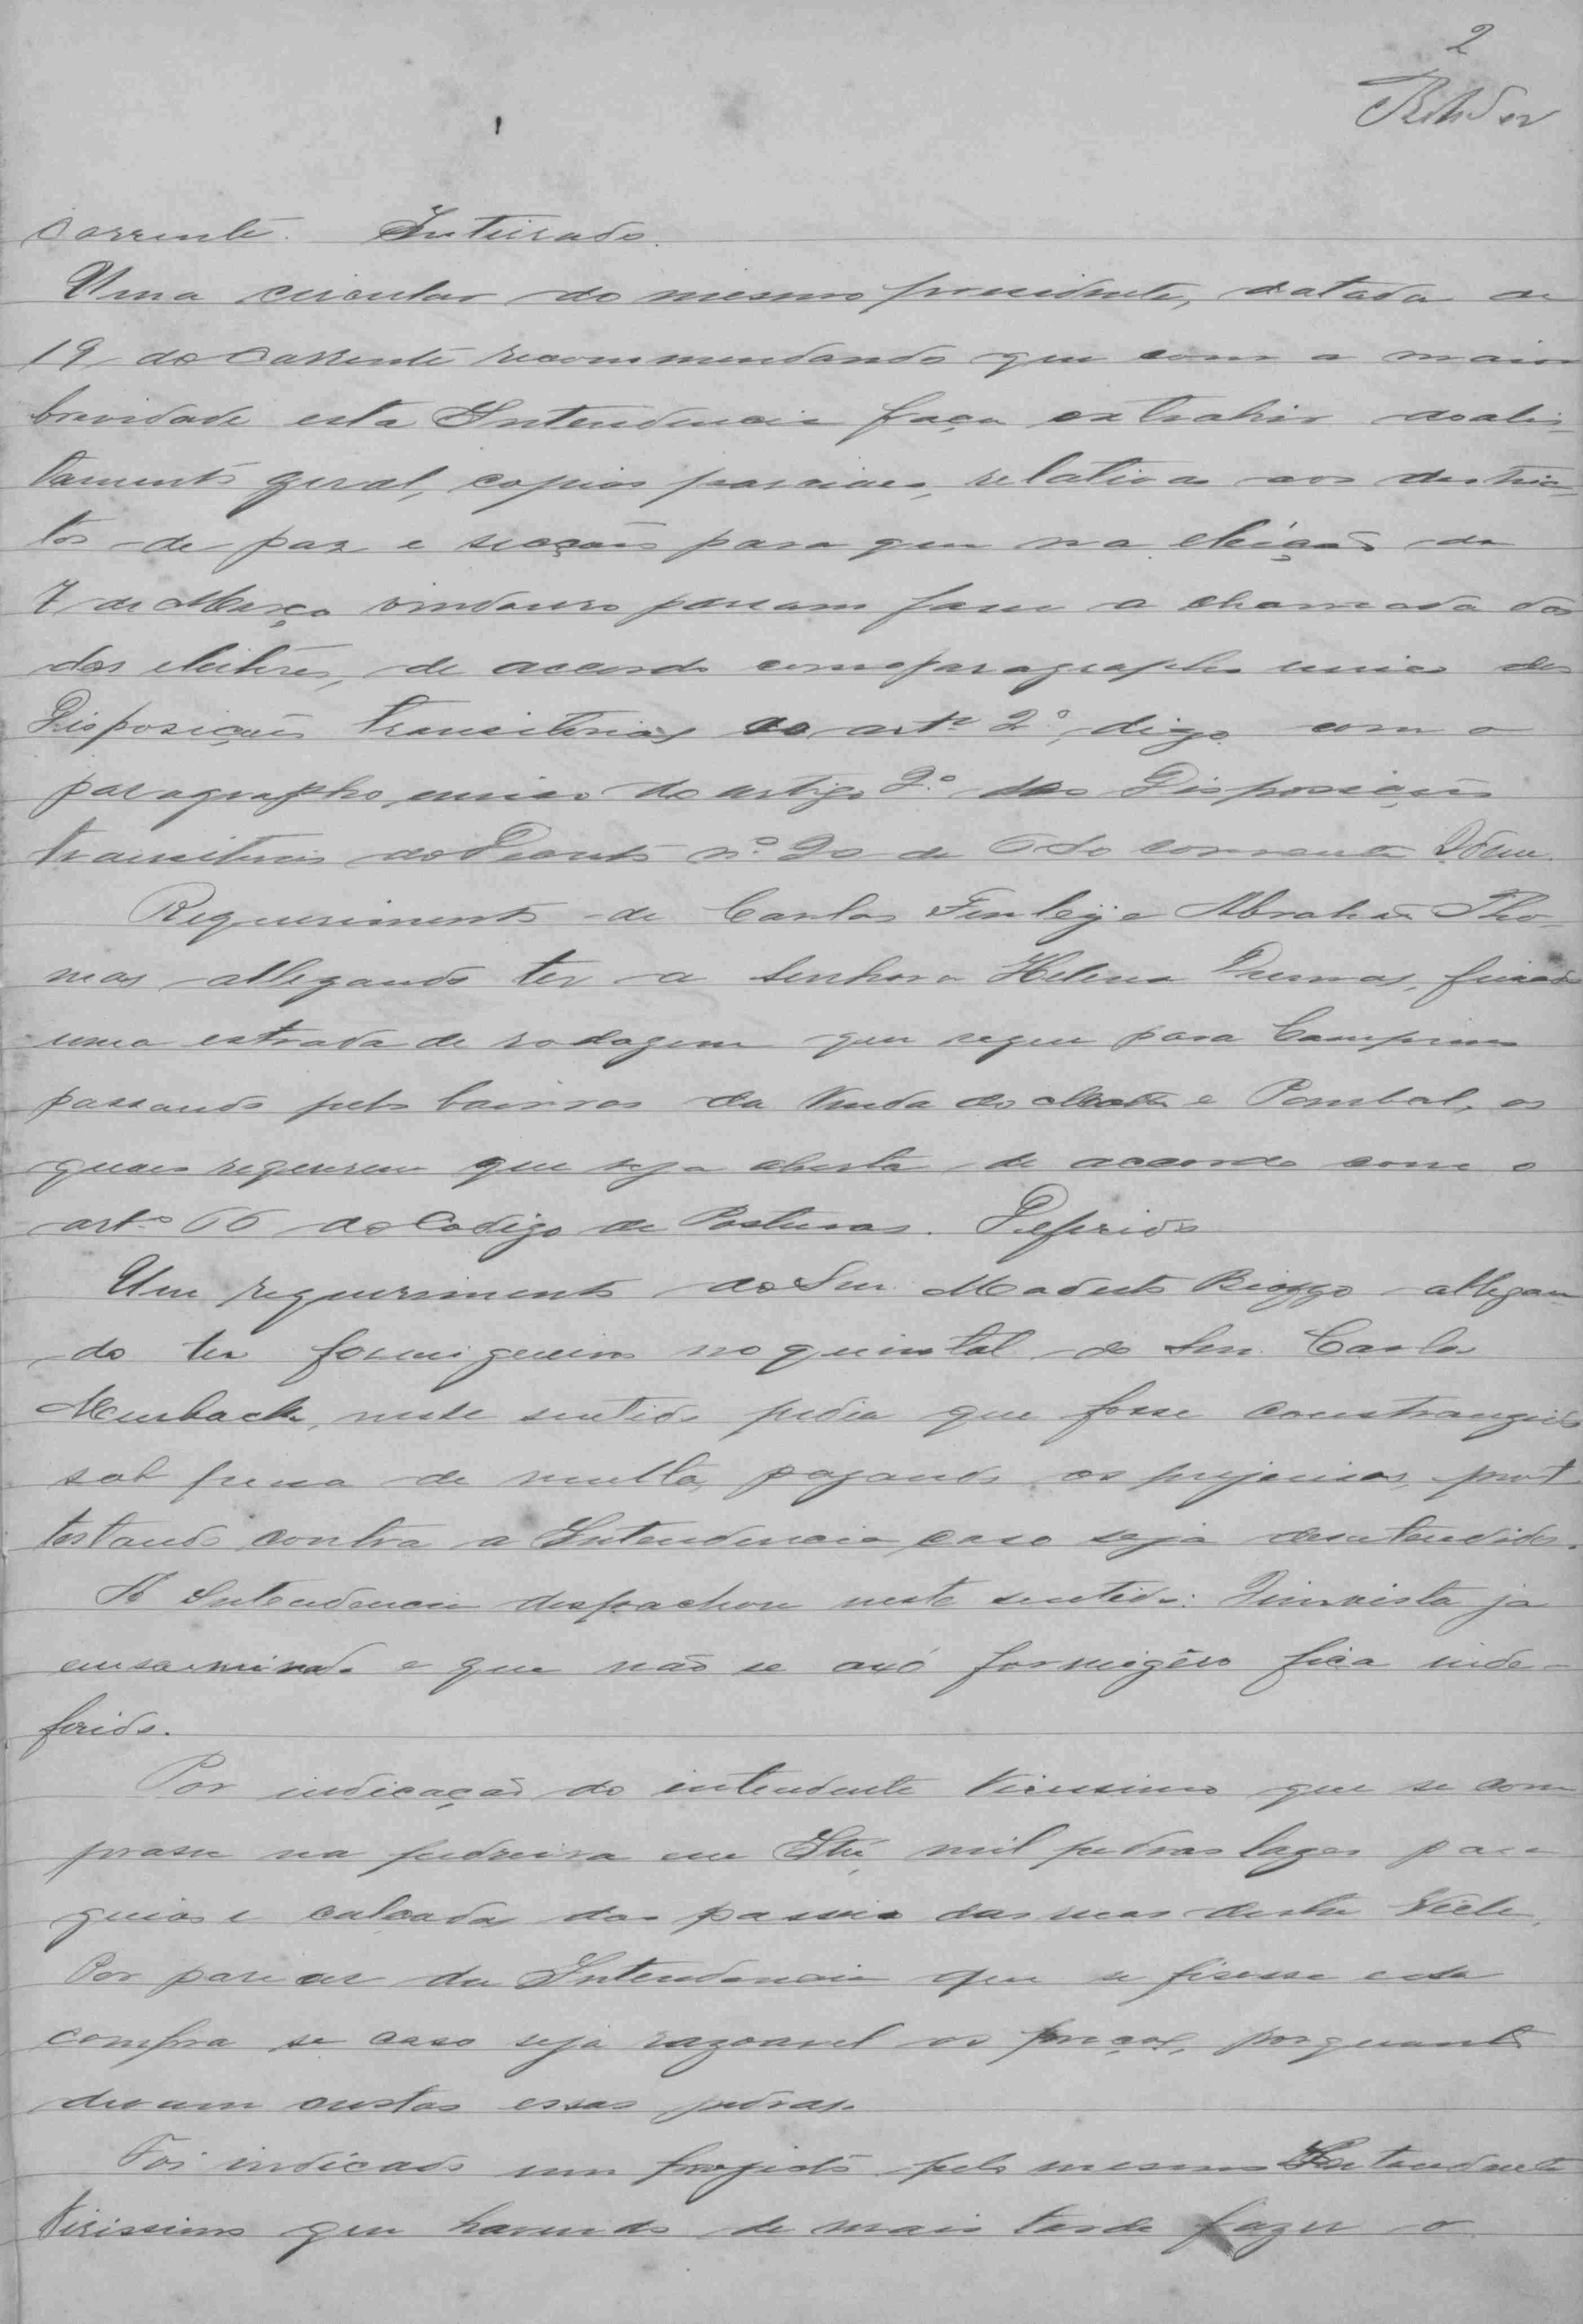 2
corrente. Inteirado.
Uma circular do mesmo presidente, datada de
19 do corrente recommendando que com a maior
brevidade esta Intendencia faça extrahir do alis-
tamento geral, copias parciaes, relativa aos destric-
tos de paz e secções para que na eleição de
7 de Março vindouro possam fazer a chamada dos
dos eleitores, de accordo com o paragrapho unico das
Disposições transitorias do artº 2º, digo com o
paragrapho unico do artigo 2º das Disposições
transitorias do Decreto nº 20 de 6 do corrente Idem.
Requerimento de Carlos Fenley e Abrahão Tho-
mas allegando ter a senhora Helena Dumas, fechado
uma estrada de rodagem que segue para Campinas
passando pelos bairros da Venda do Matto e Pombal, os
quaes requerem que seja aberta de accordo com o
artº 66 do Codigo de Posturas. Deferido
Um requerimento do Snr. Modesto Bioggo allegan
do ter formigueiro no quintal do Snr. Carlos
Murbach, neste sentido pedia que fosse constrangido
sob pena de multa, pagando os prejuisos, prot
testando contra a Intendencia caso seja desatendido.
A Intendencia despachou neste sentido: Em vista já
examinado e que não se axô formigêro fica inde-
ferido.
Por indicação do intendente Virissimo que se com
prasse na pedreira em Itú, mil pedras lages para
guias e calçada dos passeio das ruas desta Villa.
Por parecer da Intendencia que se fisesse esta
compra se caso seja razoavel os preços, porquanto
devam custar essas pedras.
Foi indicado um projecto pelo mesmo Intendente
Virissimo que havendo de mais tarde fazer o